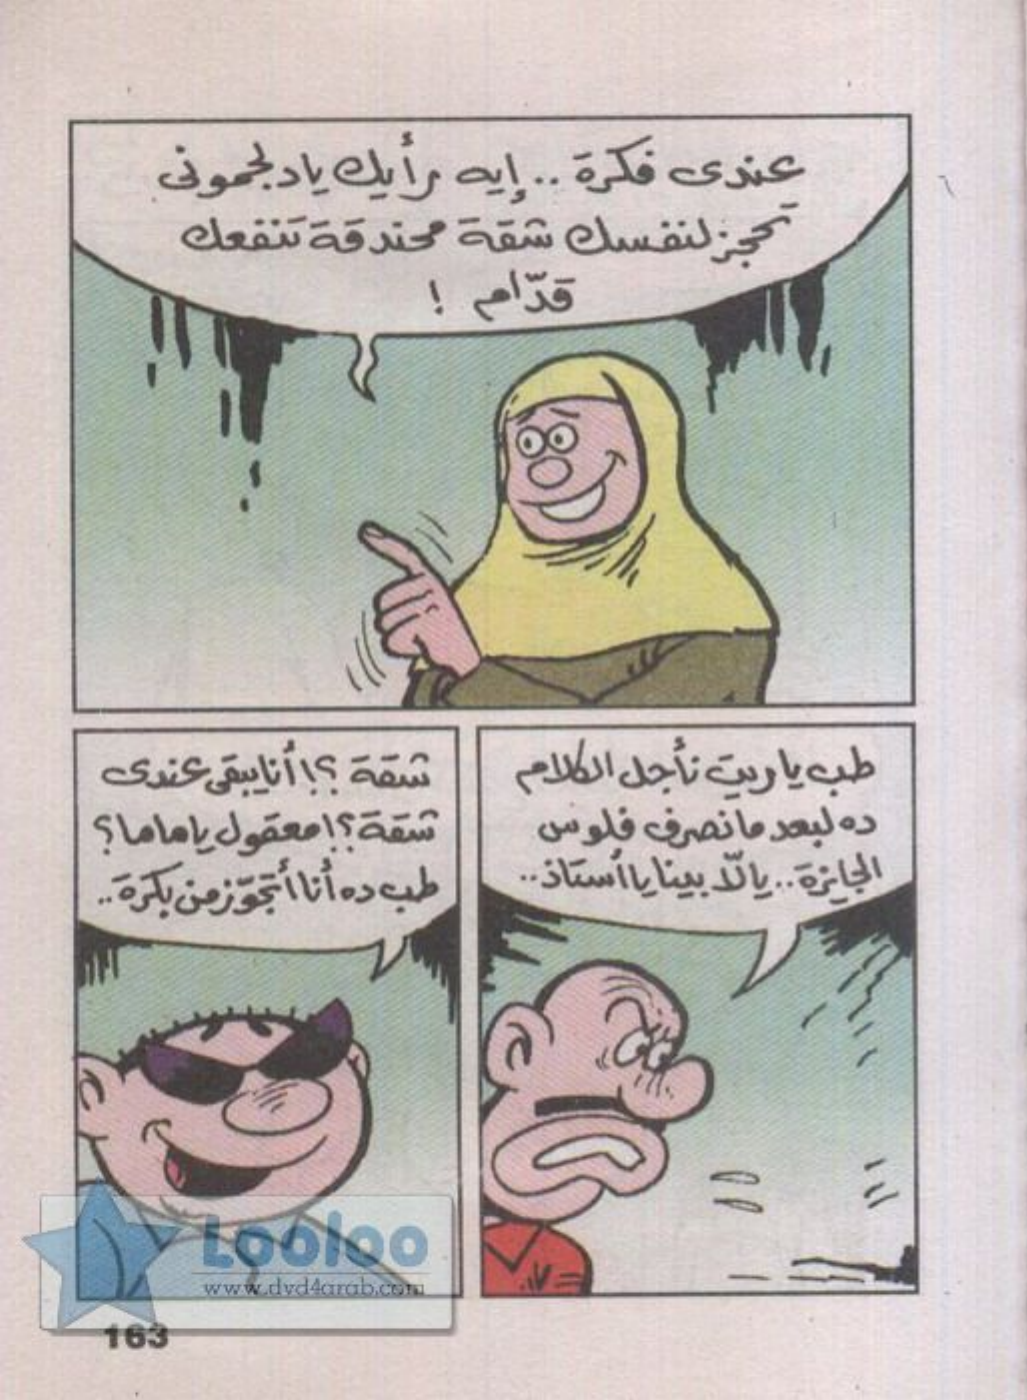 عندى فكرة .. إيه رأيك ياد لجمونى
تحجز لنفسك شقة محندقة تنفعك
قدّام !
طب ياريت نأجل الكلام
ده لبعد ما نصرف فلوس
الجايزة .. يالّا بينا يا أستاذ ..
شقة ؟! أنا يبقى عندى
شقة ؟! معقول ياماما ؟
طب ده أنا أتجوّز من بكرة ..
Looloo
www.dvd4arab.com
163